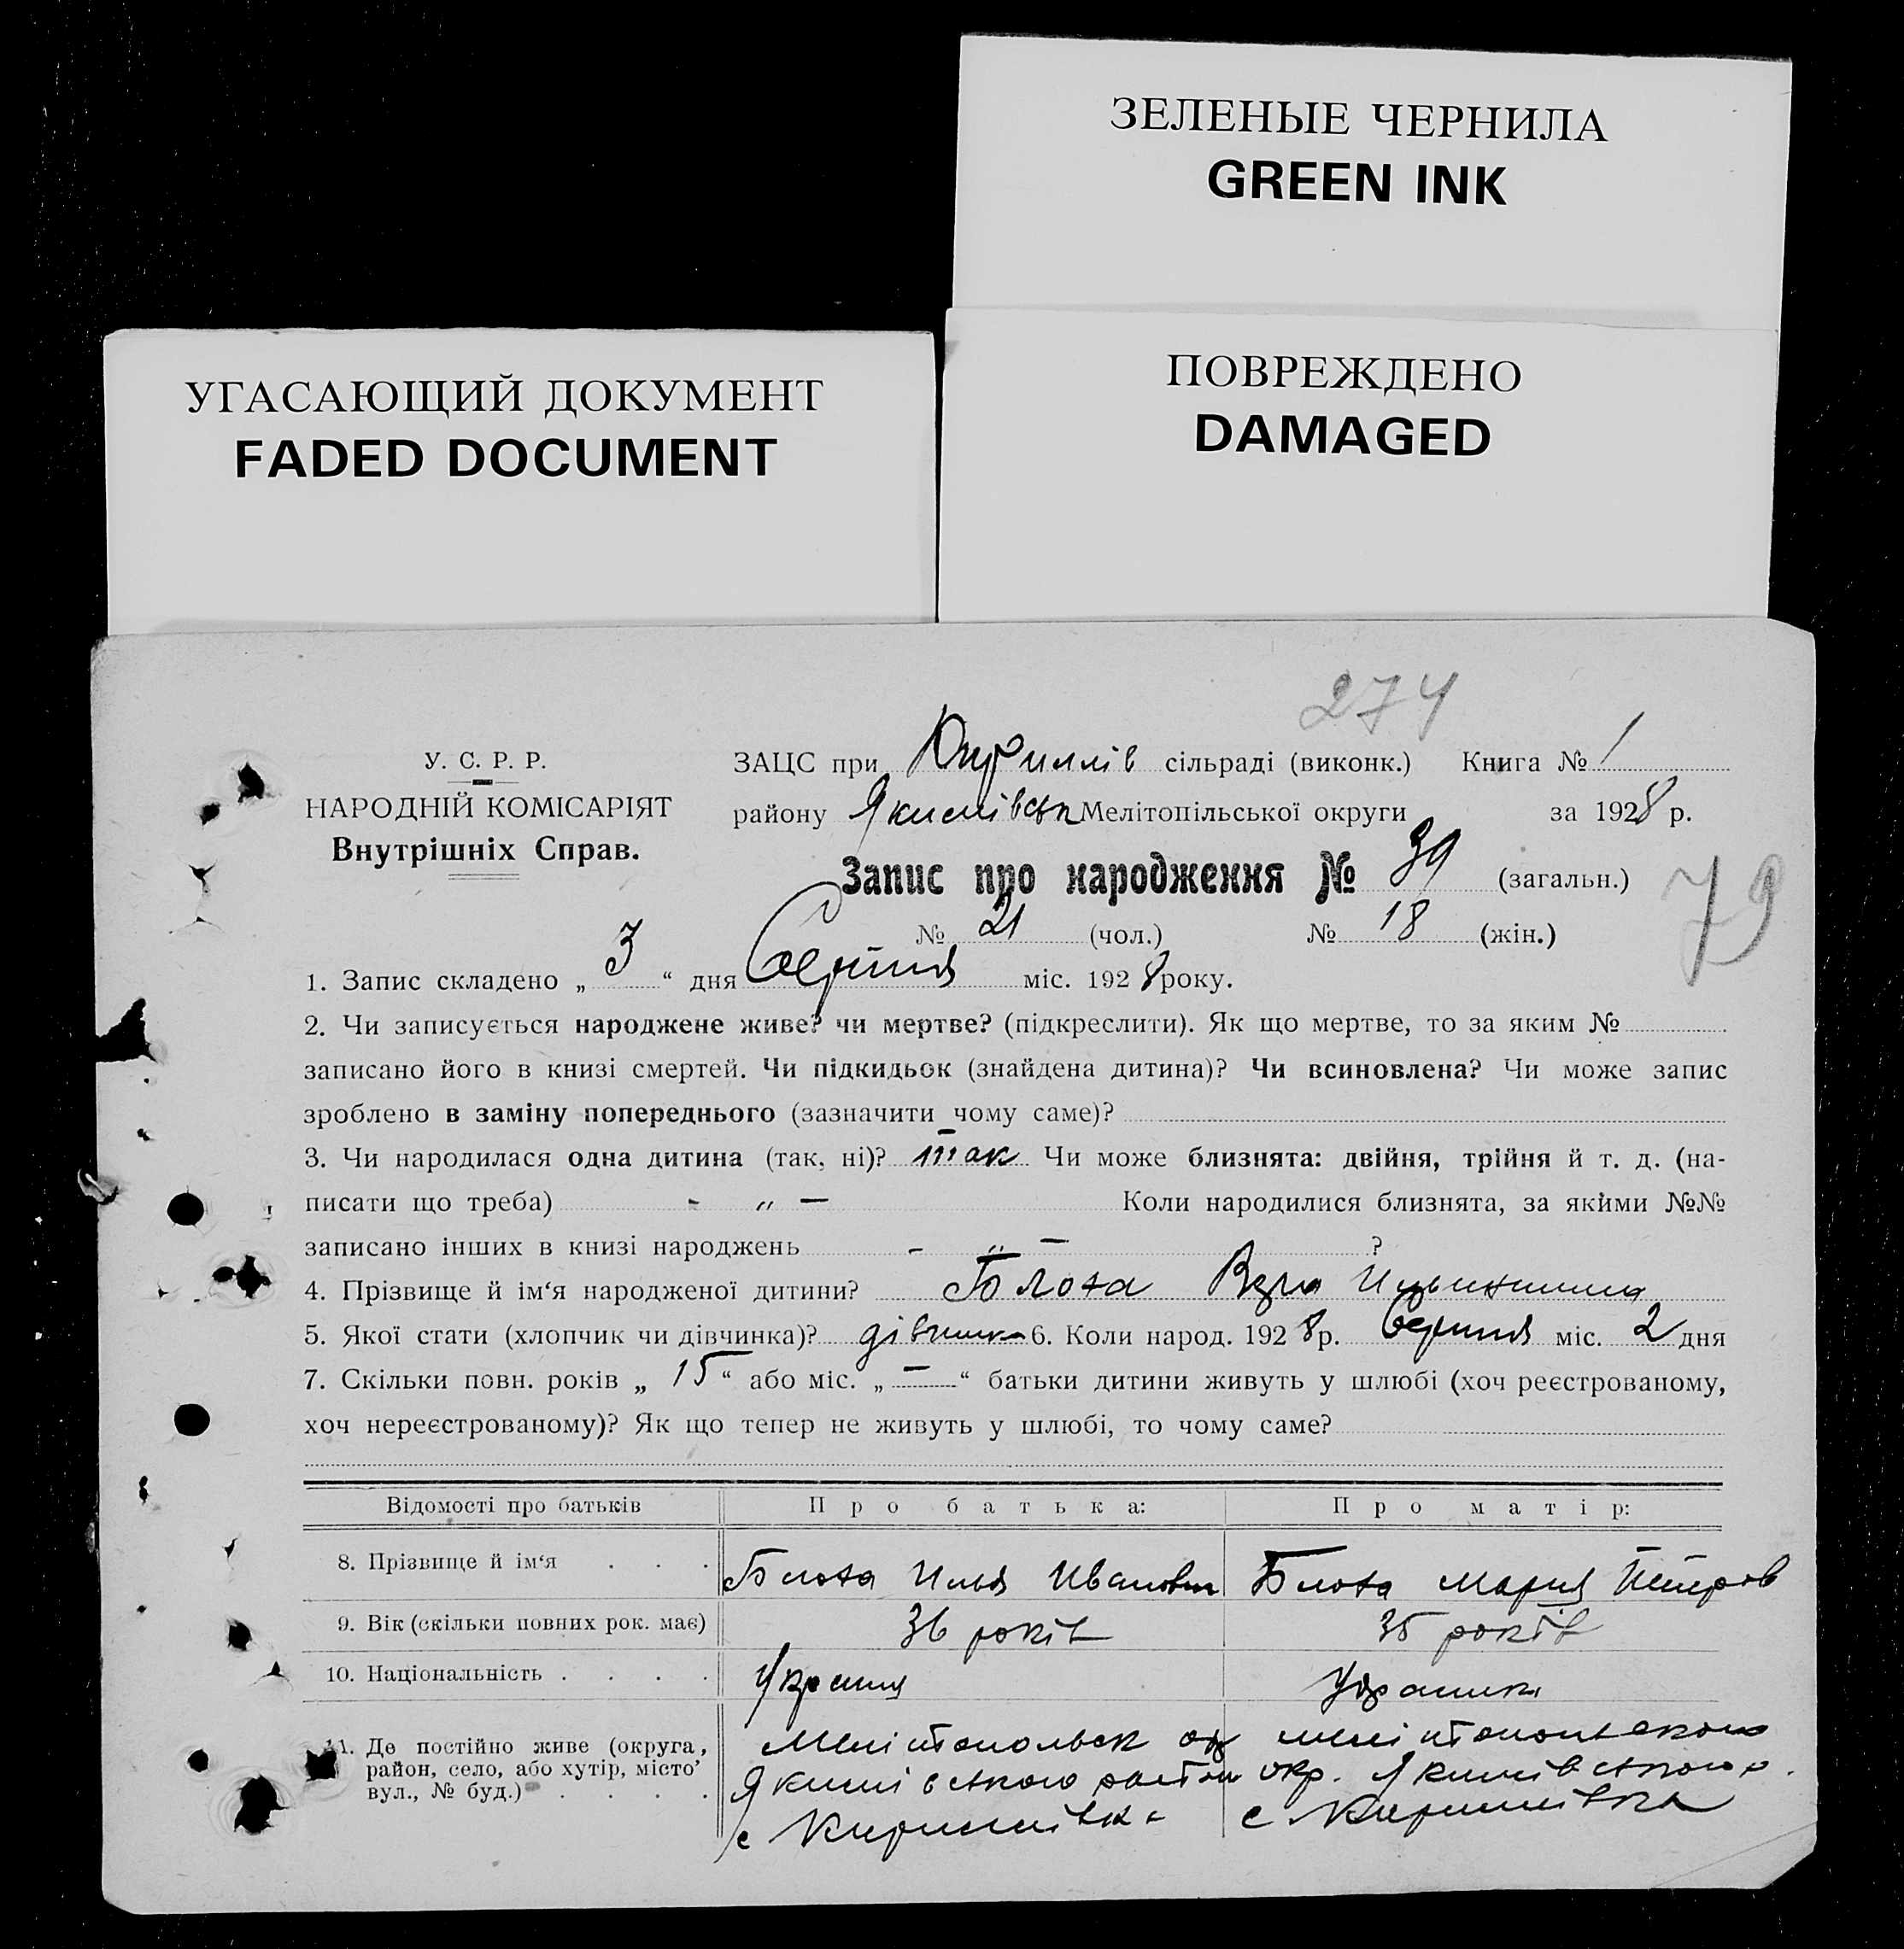 ЗЕЛЕНЫЕ ЧЕРНИЛА
GREEN INK
УГАСАЮЩИЙ ДОКУМЕНТ
FADED DOCUMENT
ПОВРЕЖДЕНО
DAMAGED
274
У. С. Р. Р.
НАРОДНІЙ КОМІСАРІЯТ
Внутрішніх Справ.
ЗАЦС при Кириллів сільраді (виконк.) Книга № 1
району Якимівськ Мелітопільської округи за 1928 р.
Запис про народження № 39 (загальн.)
79
№ 21 (чол.) № 18 (жін.)
1. Запис складено „ 3 “ дня Серпня міс. 1928 року.
2. Чи записується народжене живе? чи мертве? (підкреслити). Як що мертве, то за яким №
записано його в книзі смертей. Чи підкидьок (знайдена дитина)? Чи всиновлена? Чи може запис
зроблено в заміну попереднього (зазначити чому саме)?
3. Чи народилася одна дитина (так, ні)? так Чи може близнята: двійня, трійня й т. д. (на-
писати що треба) - „ — Коли народилися близнята, за якими №№
записано інших в книзі народжень - „ — ?
4. Прізвище й ім‘я народженої дитини? Блоха Вера
5. Якої стати (хлопчик чи дівчинка)? дівчинка 6. Коли народ. 1928 р. Серпня міс. 2 дня
7. Скільки повн. років „ 15 “ або міс. „ — “ батьки дитини живуть у шлюбі (хоч реєстрованому,
хоч нереєстрованому)? Як що тепер не живуть у шлюбі, то чому саме?
Відомості про батьків Про батька: Про матір:
8. Прізвище й ім‘я . . . Блоха Илья Иванович Блоха Мария Петров
9. Вік (скільки повних рок. має) 36 років 35 років
10. Національність . . . .
11. Де постійно живе (округа,
район, село, або хутір, місто’
вул., № буд.) . . . .
Мелітопольск ок
Якимівського район
с Кирилівка
мелітопольського
окр. Якимівського р.
с Кирилівка